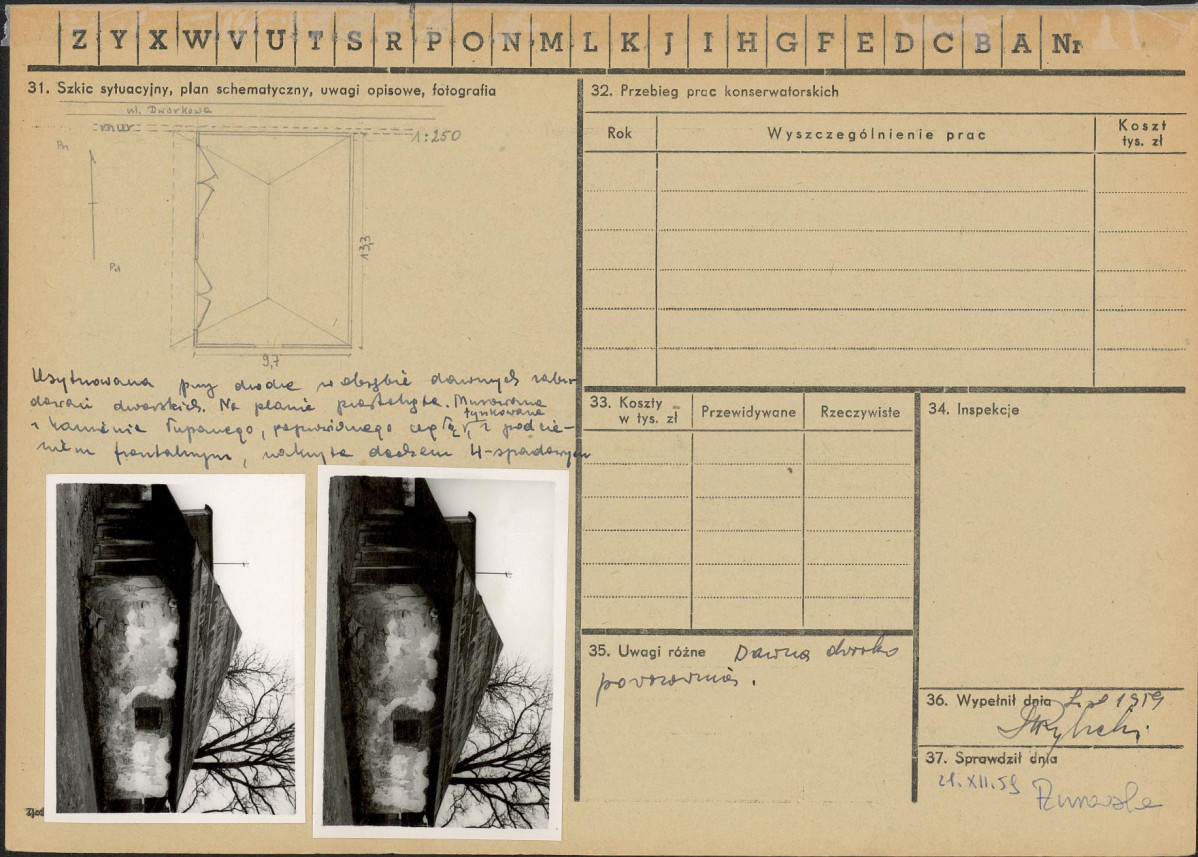 Z Y X W V U T S R P O N M L K J I H G F E D C B A Nr
31. Szkic sytuacyjny, plan schematyczny, uwagi opisowe, fotografia
ul. Dworkowa
mur
1:250
Pn
Pd
13,3
9,7
Usytuowana przy drodze w obrębie dawnych zabu-
dowań dworskich. Na planie prostokąta. Murowana
z kamienia łupanego, poprzedzielanego cegłą, tynkowana z podcie-
niem frontalnym, nakryta dachem 4-spadowym
32. Przebieg prac konserwatorskich
Rok
Wyszczególnienie prac
Koszt
tys. zł
33. Koszty
w tys. zł
Przewidywane
Rzeczywiste
34. Inspekcje
35. Uwagi różne Dawna dworska
powozownia.
36. Wypełnił dnia 1959
37. Sprawdził dnia
21.XII.59